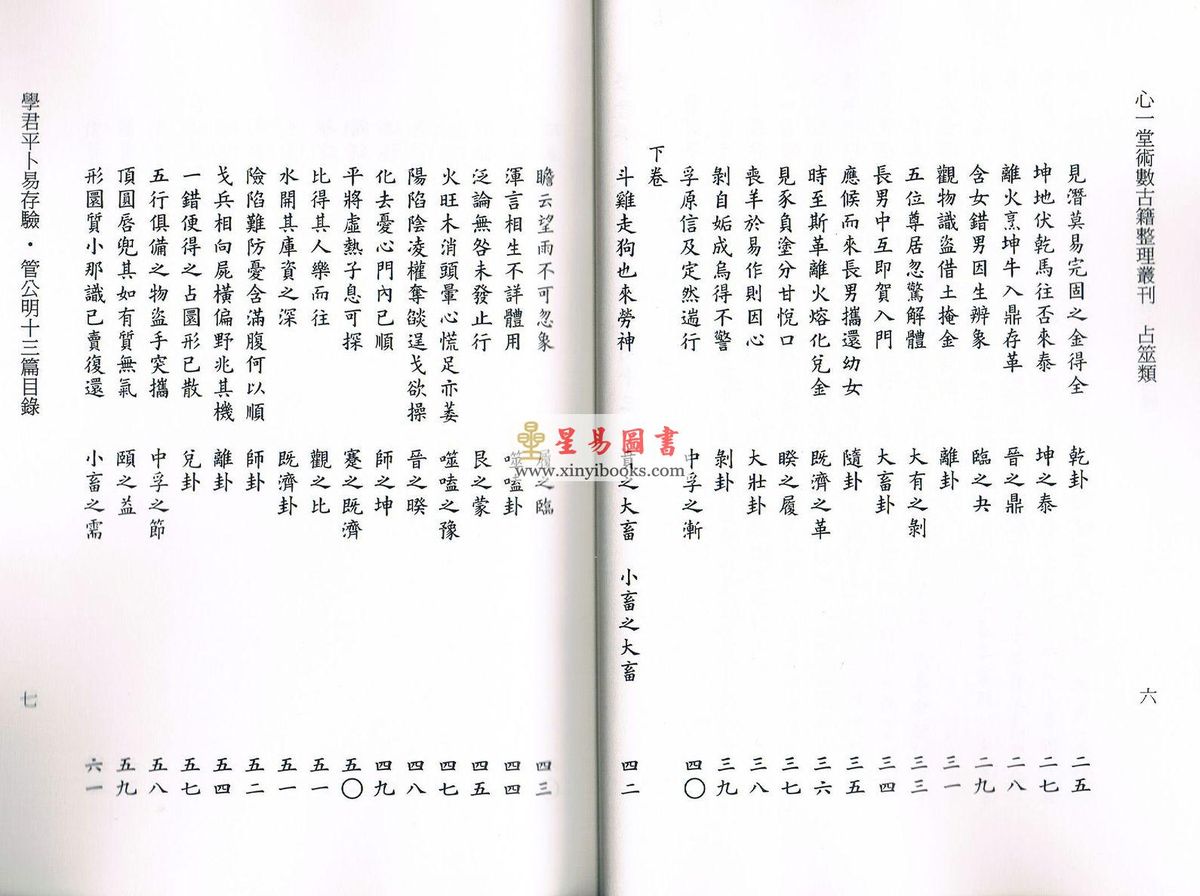 心一堂術數古籍整理叢刊 占筮類
六
見潛莫易完固之金得全 乾卦 二五
坤地伏乾馬往否來泰 坤之泰 二七
離火烹坤牛入鼎存革 晉之鼎 二八
含女錯男因生辨象 臨之夬 二九
觀物識盜借土掩金 離卦 三一
五位尊居忽驚解體 大有之剝 三三
長男中互即賀入門 大畜卦 三四
應候而來長男攜還幼女 隨卦 三五
時至斯革離火熔化兌金 既濟之革 三六
見豕負塗分甘悅口 睽之履 三七
喪羊於易作則因心 大壯卦 三八
剝自姤成烏得不警 剝卦 三九
孚原信及定然遄行 中孚之漸 四〇
下卷
斗雞走狗也來勞神 之大畜 小畜之大畜 四二
瞻云望雨不可忽象 履之臨 四三
渾言相生不詳體用 噬嗑卦 四四
泛論無咎未發止行 艮之蒙 四五
火旺木消頭暈心慌足亦萎 噬嗑之豫 四七
陽陷陰凌權奪燄逞戈欲操 晉之睽 四八
化去憂心門內已順 師之坤 四九
平將虛熱子息可探 蹇之既濟 五〇
比得其人樂而往 觀之比 五一
水開其庫資之深 既濟卦 五一
險陷難防憂含滿腹何以順 師卦 五二
戈兵相向屍橫偏野兆其機 離卦 五四
一錯便得之占圜形已散 兌卦 五七
五行俱備之物盜手突攜 中孚之節 五八
頂圓唇兜其如有質無氣 頤之益 五九
形圜質小那識已賣復還 小畜之需 六一
學君平卜易存驗·管公明十三篇目錄
七
星易圖書
www.xinyibooks.com